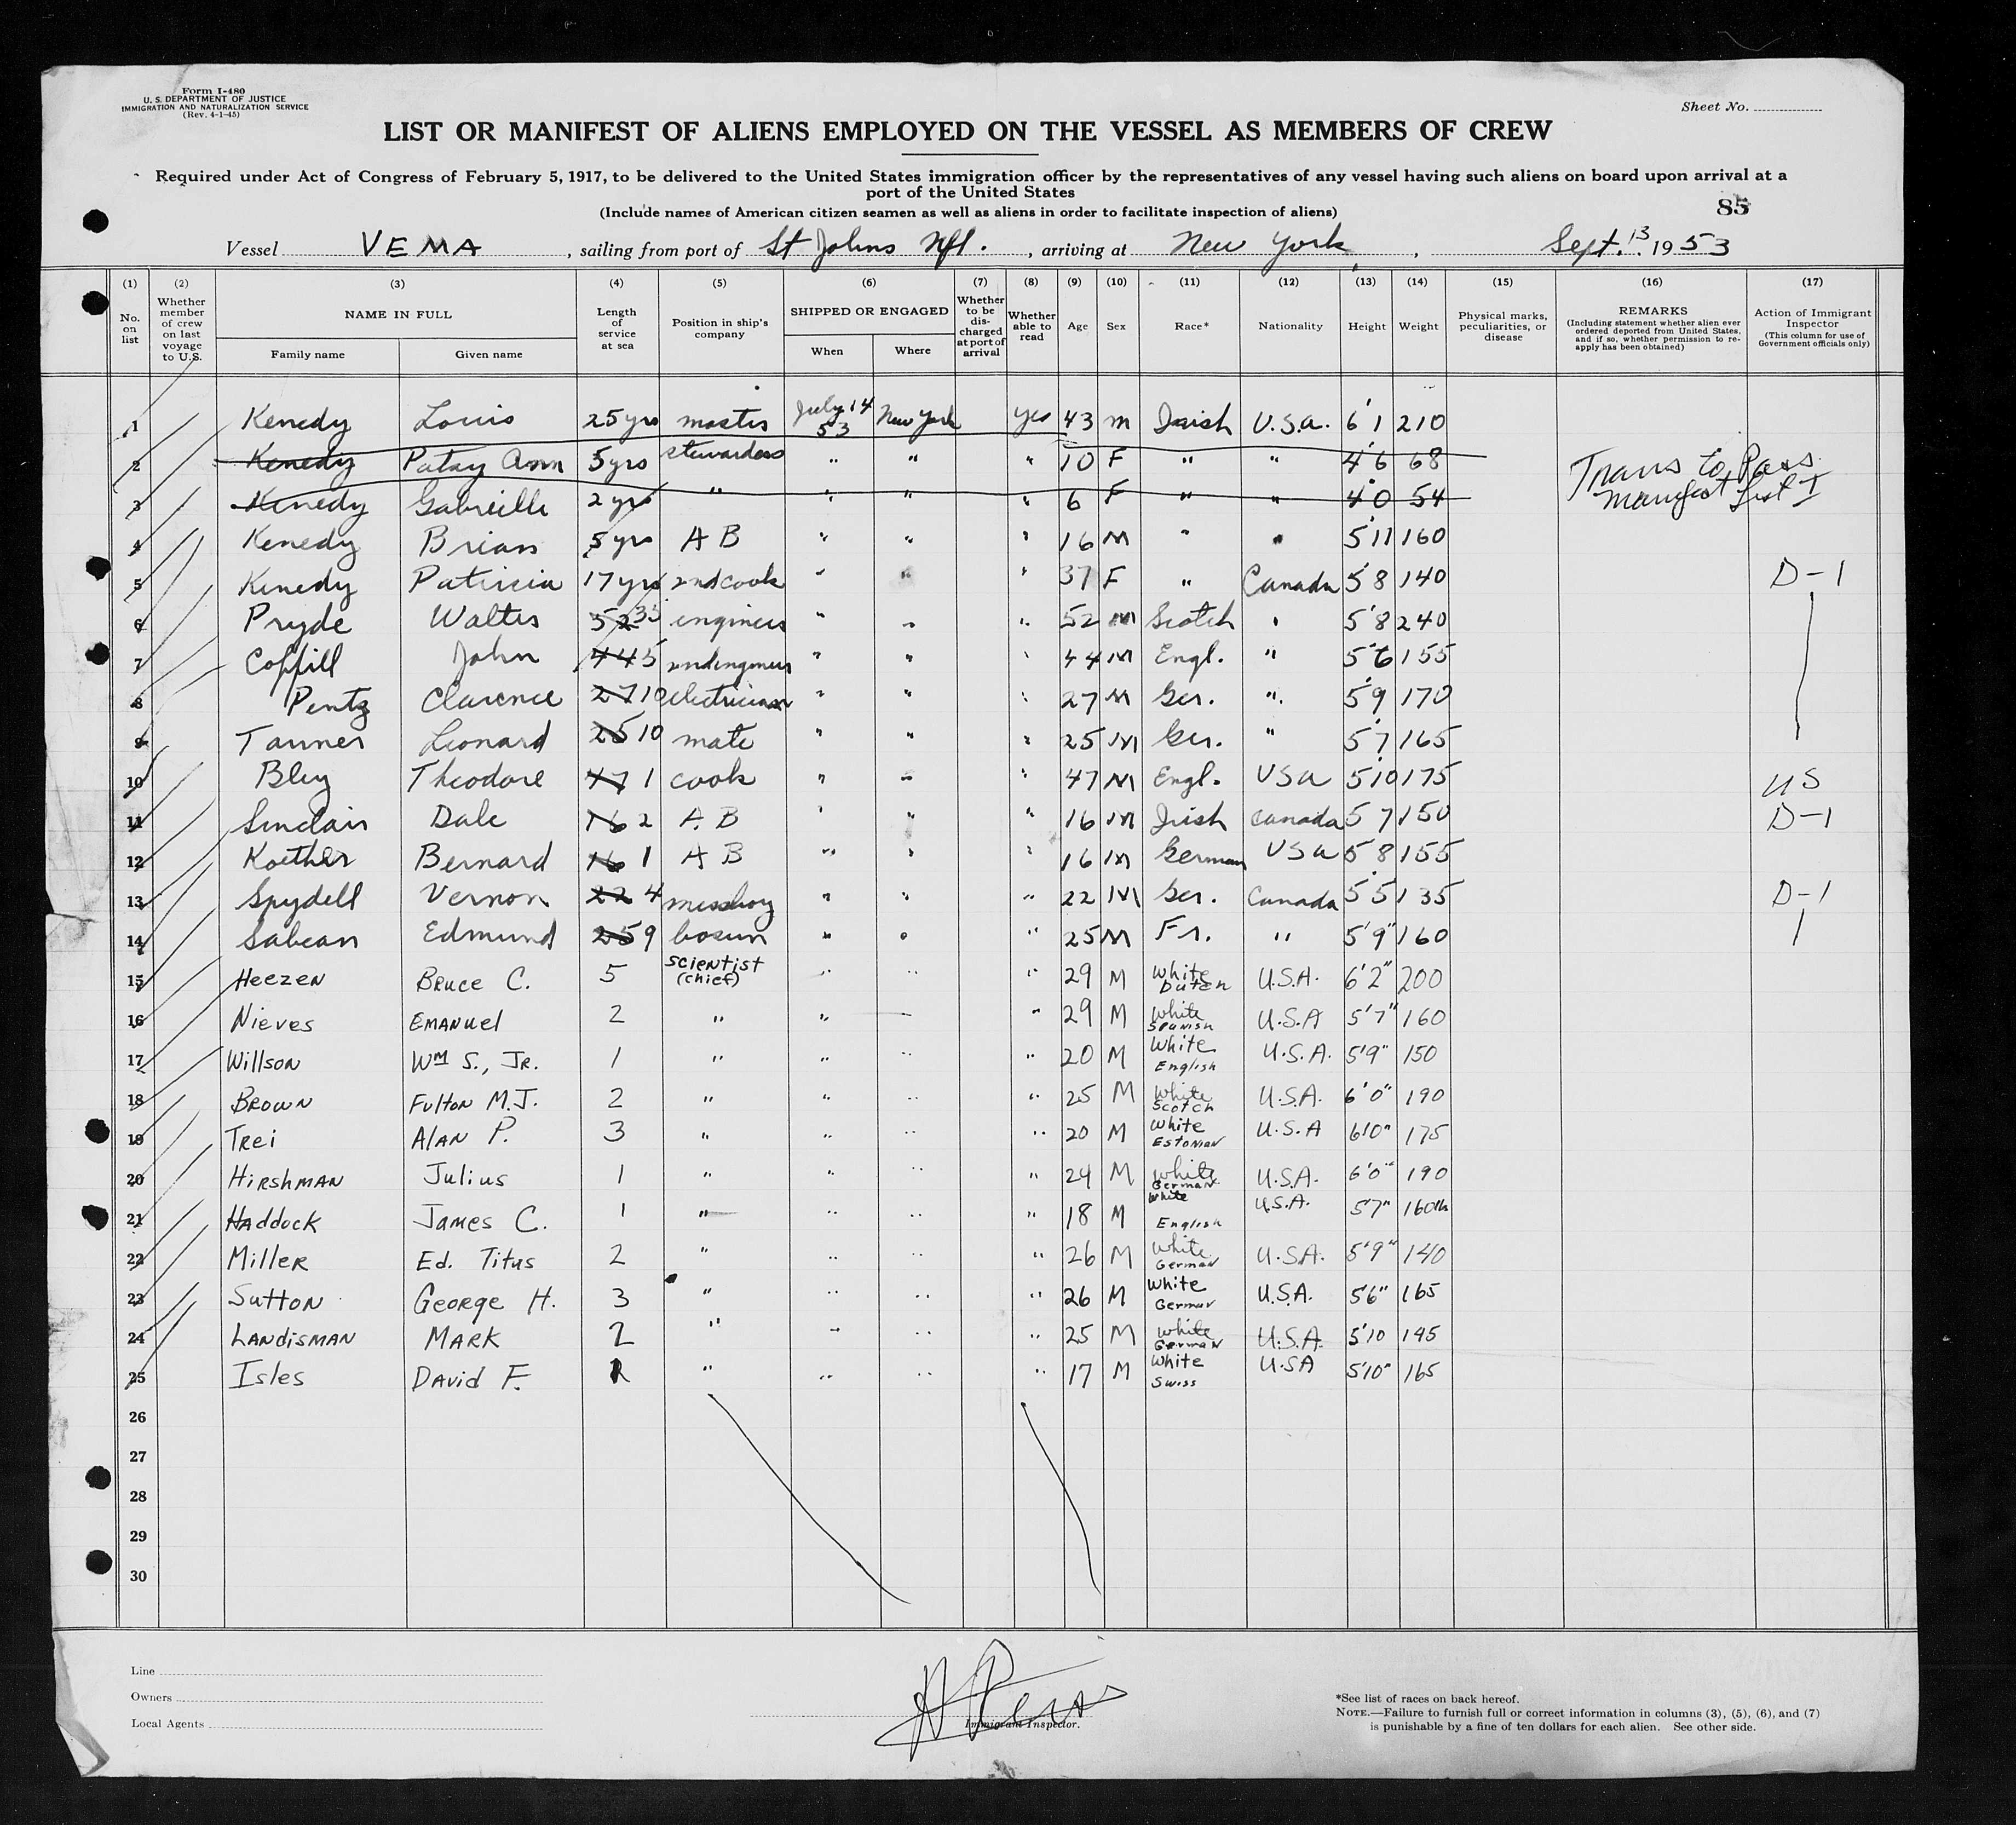 Form I-480
U. S. DEPARTMENT OF JUSTICE
IMMIGRATION AND NATURALIZATION SERVICE
(Rev. 4-1-45)
Sheet No.
LIST OR MANIFEST OF ALIENS EMPLOYED ON THE VESSEL AS MEMBERS OF CREW
Required under Act of Congress of February 5, 1917, to be delivered to the United States immigration officer by the representatives of any vessel having such aliens on board upon arrival at a
port of the United States
(Include names of American citizen seamen as well as aliens in order to facilitate inspection of aliens)
85
Vessel VEMA, sailing from port of St Johns Nfl., arriving at New York, Sept. 13 1953
(1) (2) (3) (4) (5) (6) (7) (8) (9) (10) (11) (12) (13) (14) (15) (16) (17)
No. on list
Whether member of crew on last voyage to U.S.
NAME IN FULL
Family name Given name
Length of service at sea
Position in ship's company
SHIPPED OR ENGAGED
When Where
Whether to be discharged at port of arrival
Whether able to read
Age
Sex
Race*
Nationality
Height
Weight
Physical marks, peculiarities, or disease
REMARKS
(Including statement whether alien ever ordered deported from United States, and if so, whether permission to re-apply has been obtained)
Action of Immigrant Inspector
(This column for use of Government officials only)
1 Kenedy Louis 25 yrs master July 14 53 New York yes 43 m Irish U.S.A. 6'1 210
2 Kenedy Patsy Ann 5 yrs stewardess " " " 10 F " " 4'6 68 Trans to Pass.
3 Kenedy Gabreille 2 yrs " " " " 6 F " " 4'0 54 Manifest List I
4 Kenedy Brian 5 yrs A B " " " 16 M " " 5'11 160
5 Kenedy Patricia 17 yrs 2nd cook " " " 37 F " Canada 5'8 140 D-1
6 Pryde Walter 52 35 engineer " " " 52 M Scotch " 5'8 240
7 Coffill John 44 5 2nd engineer " " " 44 M Engl. " 5'6 155
8 Pentz Clarence 27 10 electrician " " " 27 M Ger. " 5'9 170
9 Tanner Leonard 25 10 mate " " " 25 M Ger. " 5'7 165
10 Bley Theodore 47 1 cook " " " 47 M Engl. USA 5'10 175 US
11 Sinclair Dale 16 2 A.B " " " 16 M Irish Canada 5 7 150 D-1
12 Koether Bernard 16 1 A B " " " 16 M German USA 5 8 155
13 Spydell Vernon 22 4 messboy " " " 22 M Ger. Canada 5'5 135 D-1
14 Sabean Edmund 25 9 bosun " " " 25 M Fr. " 5'9" 160
15 Heezen Bruce C. 5 scientist (chief) " " " 29 M White Dutch U.S.A. 6'2" 200
16 Nieves Emanuel 2 " " " 29 M White Spanish U.S.A 5'7" 160
17 Willson Wm S., Jr. 1 " " " " 20 M White English U.S.A. 5'9" 150
18 Brown Fulton M.J. 2 " " " " 25 M White Scotch U.S.A. 6'0" 190
19 Trei Alan P. 3 " " " " 20 M White Estonian U.S.A 6'0" 175
20 Hirshman Julius 1 " " " " 24 M White German U.S.A. 6'0" 190
21 Haddock James C. 1 " " " " 18 M White English U.S.A. 5'7" 160lb
22 Miller Ed. Titus 2 " " " " 26 M White German U.S.A. 5'9" 140
23 Sutton George H. 3 " " " " 26 M White German U.S.A. 5'6" 165
24 Landisman Mark 2 " " " " 25 M White German U.S.A. 5'10 145
25 Isles David F. " " " " 17 M White Swiss USA 5'10" 165
26
27
28
29
30
Line
Owners
Local Agents
Immigrant Inspector.
*See list of races on back hereof.
NOTE.—Failure to furnish full or correct information in columns (3), (5), (6), and (7)
is punishable by a fine of ten dollars for each alien. See other side.